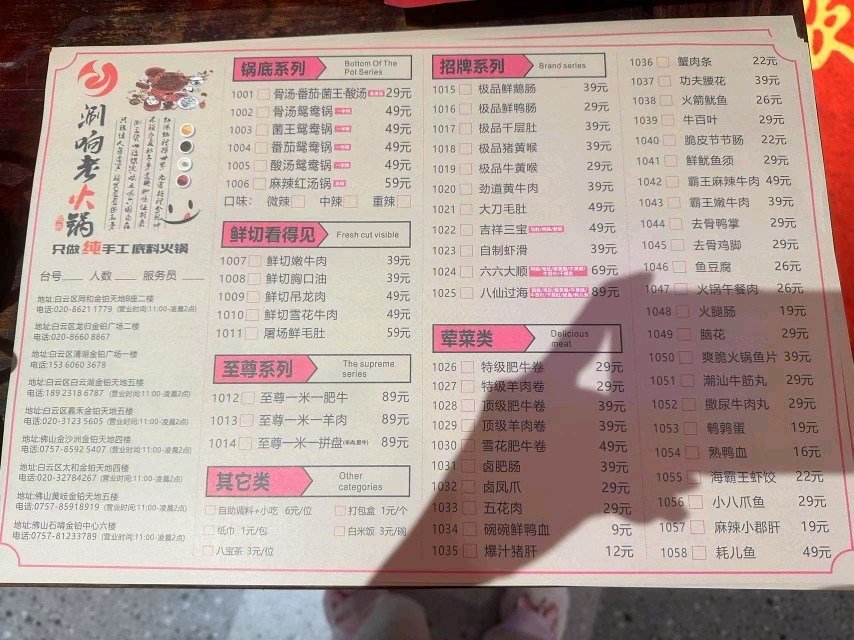 涮响老火锅
只做纯手工底料火锅
台号 人数 服务员
地址:白云区同和金铂天地B座二楼
电话:020-8621 1779 (营业时间:11:00-凌晨2点)
地址:白云区龙归金铂广场二楼
电话:020-8660 8867
地址:白云区清湖金铂广场一楼
电话:153 6060 3678
地址:白云区白云湖金铂天地五楼
电话:189 2318 6787 (营业时间:11:00-凌晨2点)
地址:白云区嘉禾金铂天地五楼
电话:020-3123 5605 (营业时间:11:00-凌晨2点)
地址:佛山金沙洲金铂天地四楼
电话:0757-8592 5407 (营业时间:11:00-凌晨2点)
地址:白云区太和金铂天地四楼
电话:020-32784267 (营业时间:11:00-凌晨2点)
地址:佛山黄岐金铂天地五楼
电话:0757-85918919 (营业时间:11:00-凌晨2点)
地址:佛山石𬒔金铂中心六楼
电话:0757-81233789 (营业时间:11:00-凌晨2点)
锅底系列 Bottom Of The Pot Series
1001 骨汤·番茄·菌王·酸汤 29元
1002 骨汤鸳鸯锅 一半辣 49元
1003 菌王鸳鸯锅 一半辣 49元
1004 番茄鸳鸯锅 一半辣 49元
1005 酸汤鸳鸯锅 一半辣 49元
1006 麻辣红汤锅 59元
口味: 微辣 中辣 重辣
鲜切看得见 Fresh cut visible
1007 鲜切嫩牛肉 39元
1008 鲜切胸口油 39元
1009 鲜切吊龙肉 49元
1010 鲜切雪花牛肉 49元
1011 屠场鲜毛肚 59元
至尊系列 The supreme series
1012 至尊一米一肥牛 89元
1013 至尊一米一羊肉 89元
1014 至尊一米一拼盘(羊肉.肥牛) 89元
其它类 Other categories
自助调料+小吃 6元/位 打包盒 1元/个
纸巾 1元/包 白米饭 3元/碗
八宝茶 3元/位
招牌系列 Brand series
1015 极品鲜鹅肠 39元
1016 极品鲜鸭肠 29元
1017 极品千层肚 39元
1018 极品猪黄喉 39元
1019 极品牛黄喉 49元
1020 劲道黄牛肉 39元
1021 大刀毛肚 49元
1022 吉祥三宝 49元
1023 自制虾滑 39元
1024 六六大顺 69元
1025 八仙过海 89元
荤菜类 Delicious meat
1026 特级肥牛卷 29元
1027 特级羊肉卷 29元
1028 顶级肥牛卷 39元
1029 顶级羊肉卷 39元
1030 雪花肥牛卷 49元
1031 卤肥肠 39元
1032 卤凤爪 29元
1033 五花肉 29元
1034 碗碗鲜鸭血 9元
1035 爆汁猪肝 12元
1036 蟹肉条 22元
1037 功夫腰花 39元
1038 火箭鱿鱼 26元
1039 牛百叶 29元
1040 脆皮节节肠 22元
1041 鲜鱿鱼须 29元
1042 霸王麻辣牛肉 49元
1043 霸王嫩牛肉 39元
1044 去骨鸭掌 29元
1045 去骨鸡脚 29元
1046 鱼豆腐 26元
1047 火锅午餐肉 26元
1048 火腿肠 19元
1049 脑花 29元
1050 爽脆火锅鱼片 39元
1051 潮汕牛筋丸 29元
1052 撒尿牛肉丸 29元
1053 鹌鹑蛋 19元
1054 熟鸭血 16元
1055 海霸王虾饺 22元
1056 小八爪鱼 29元
1057 麻辣小郡肝 19元
1058 耗儿鱼 49元